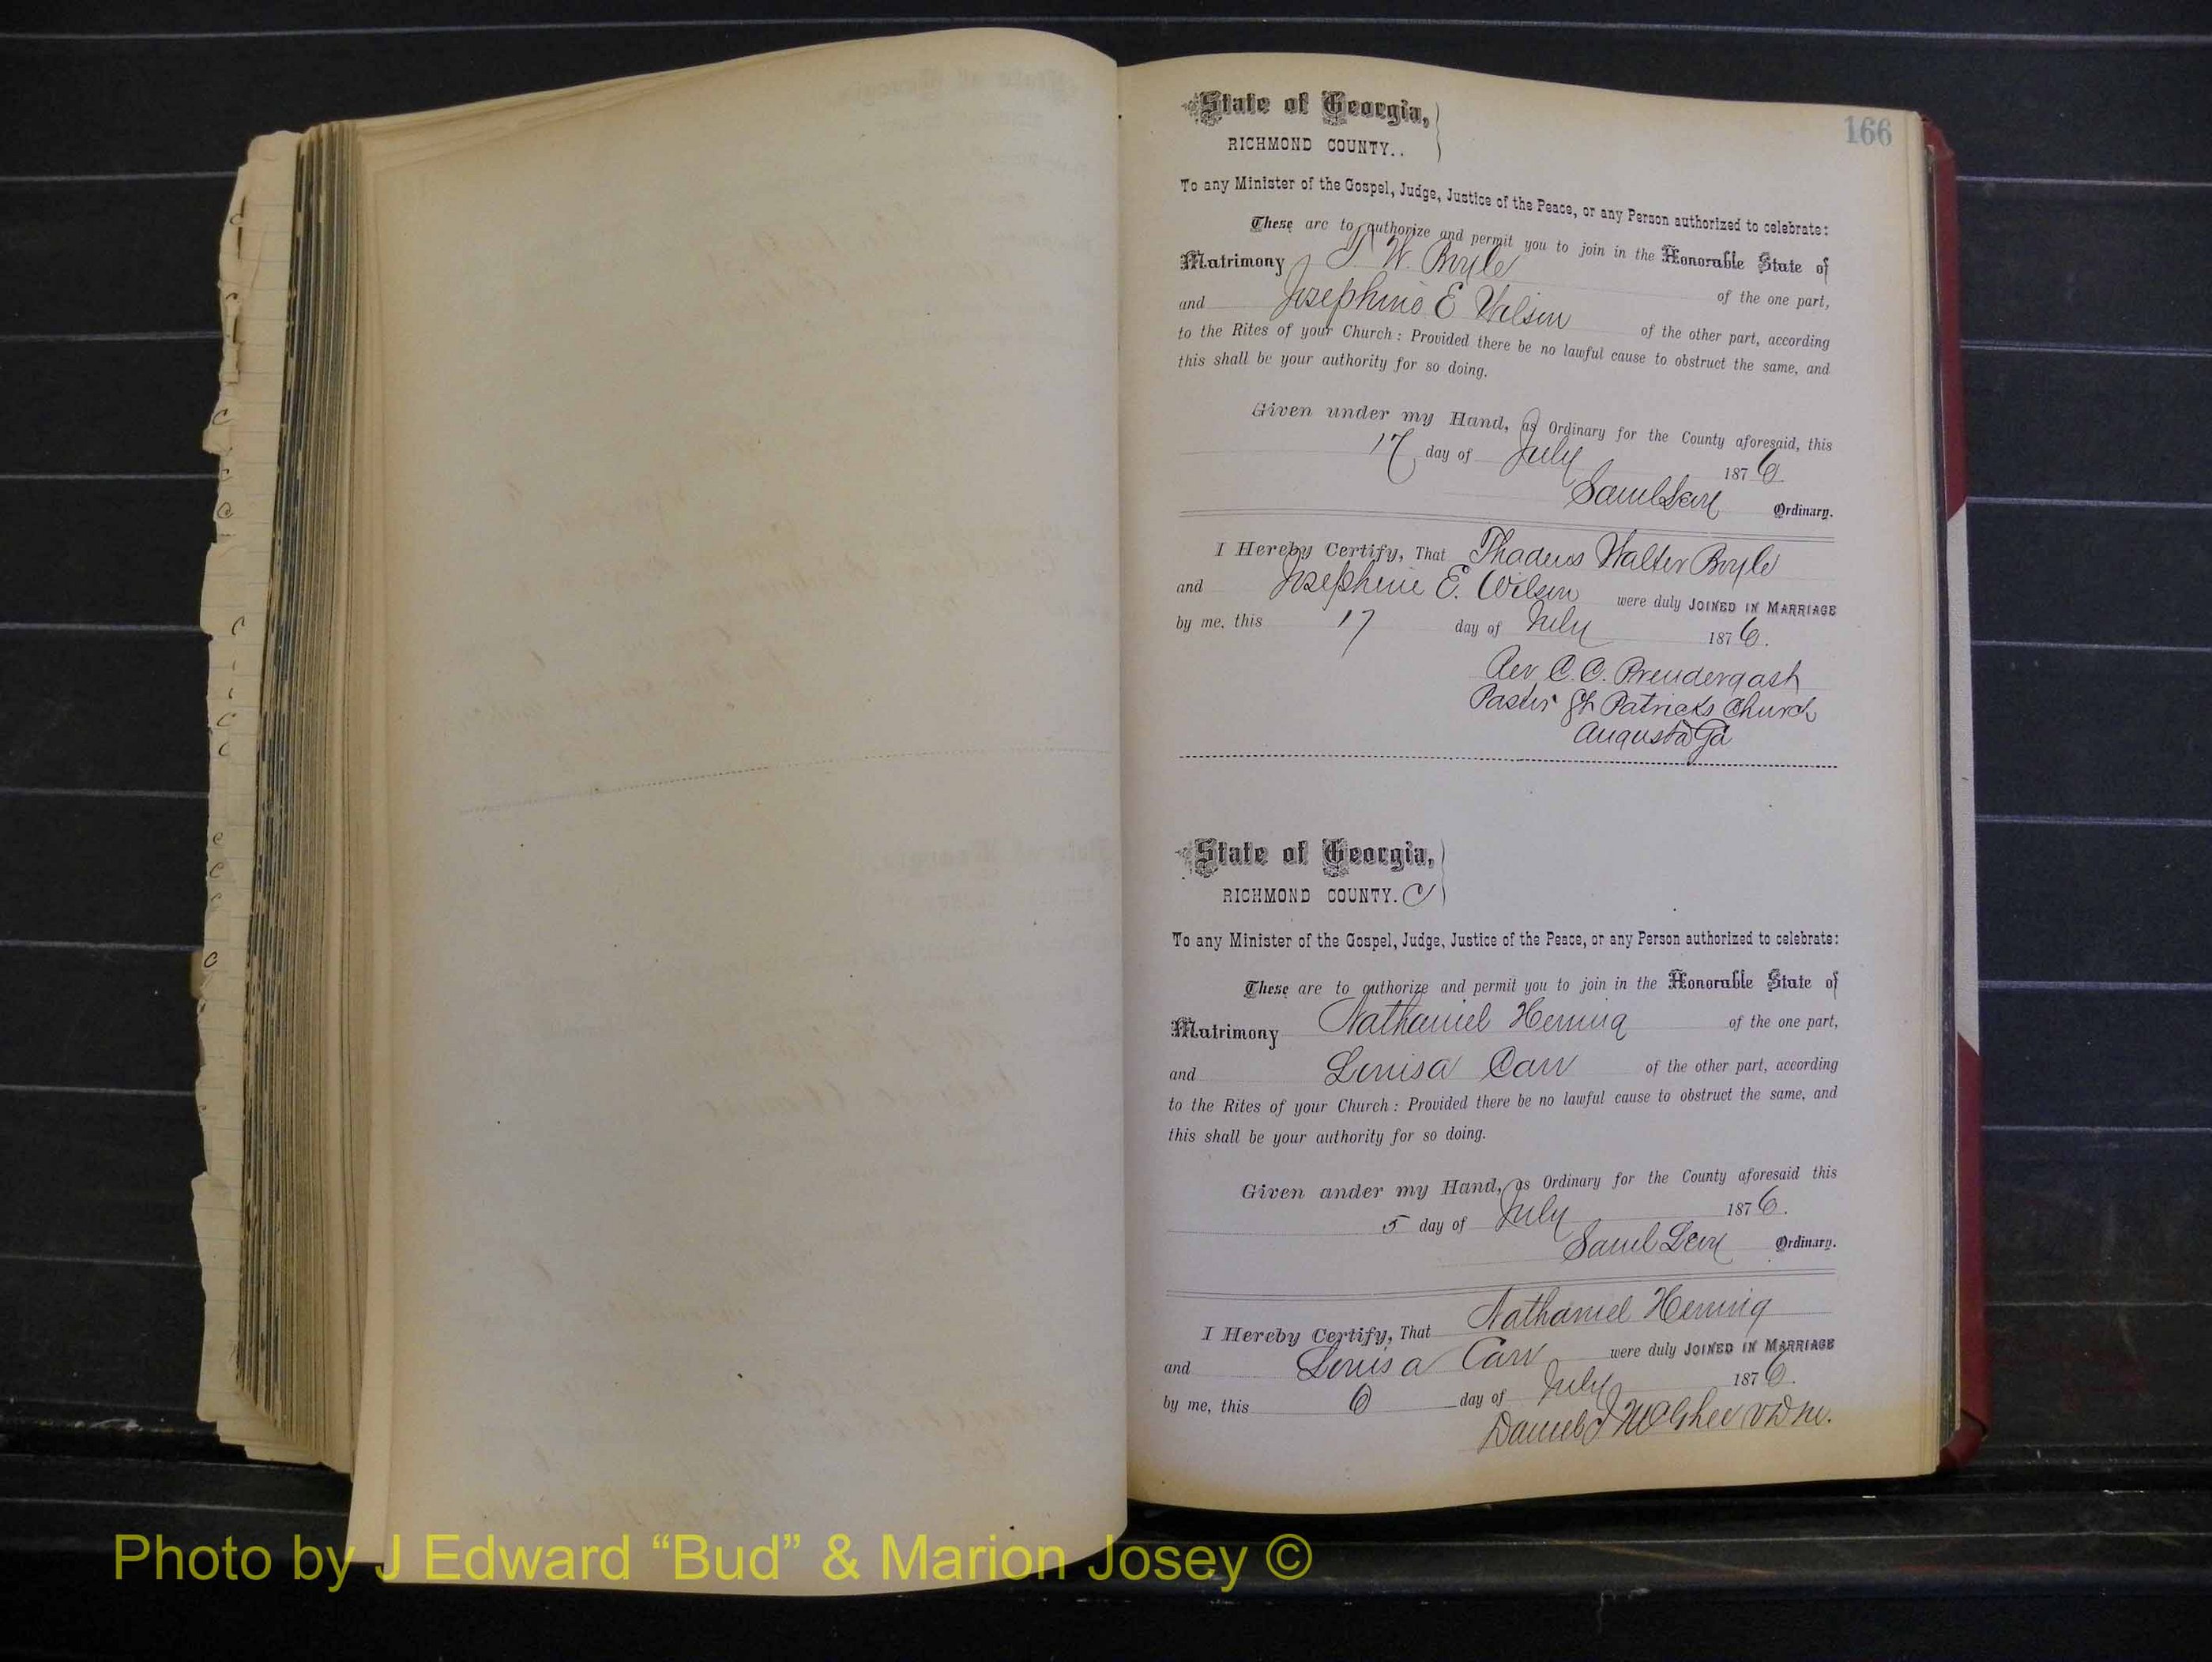 166
State of Georgia,
RICHMOND COUNTY..
To any Minister of the Gospel, Judge, Justice of the Peace, or any Person authorized to celebrate:
These are to authorize and permit you to join in the Honorable State of
Matrimony T W. Boyle of the one part,
and Josephine E Wilson of the other part, according
to the Rites of your Church : Provided there be no lawful cause to obstruct the same, and
this shall be your authority for so doing.
Given under my Hand, as Ordinary for the County aforesaid, this
17 day of July 1876
Saml Levy Ordinary.
I Hereby Certify, That Thadeus Walter Boyle
and Josephine E. Wilson were duly JOINED IN MARRIAGE
by me, this 17 day of July 1876.
Rev C. C. Prendergast
Pastor St Patricks Church
Augusta Ga
State of Georgia,
RICHMOND COUNTY. C
To any Minister of the Gospel, Judge, Justice of the Peace, or any Person authorized to celebrate:
These are to authorize and permit you to join in the Honorable State of
Matrimony Nathaniel Hernig of the one part,
and Louisa Carr of the other part, according
to the Rites of your Church : Provided there be no lawful cause to obstruct the same, and
this shall be your authority for so doing.
Given ander my Hand, as Ordinary for the County aforesaid this
5 day of July 1876.
Saml Levy Ordinary.
I Hereby Certify, That Nathaniel Hernig
and Louisa Carr were duly JOINED IN MARRIAGE
by me, this 6 day of July 1876.
Daniel J McGhee VDM.
Photo by J Edward “Bud” & Marion Josey ©